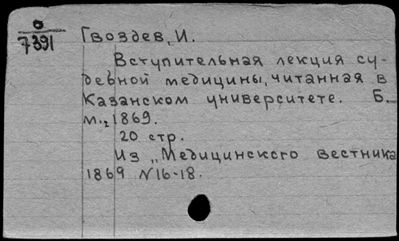 О
7391
Гвоздев, И.
Вступительная лекция су-
дебной медицины, читанная в
Казанском университете. Б.
м., 1869.
20 стр.
Из „Медицинского вестника
1869 №16-18.